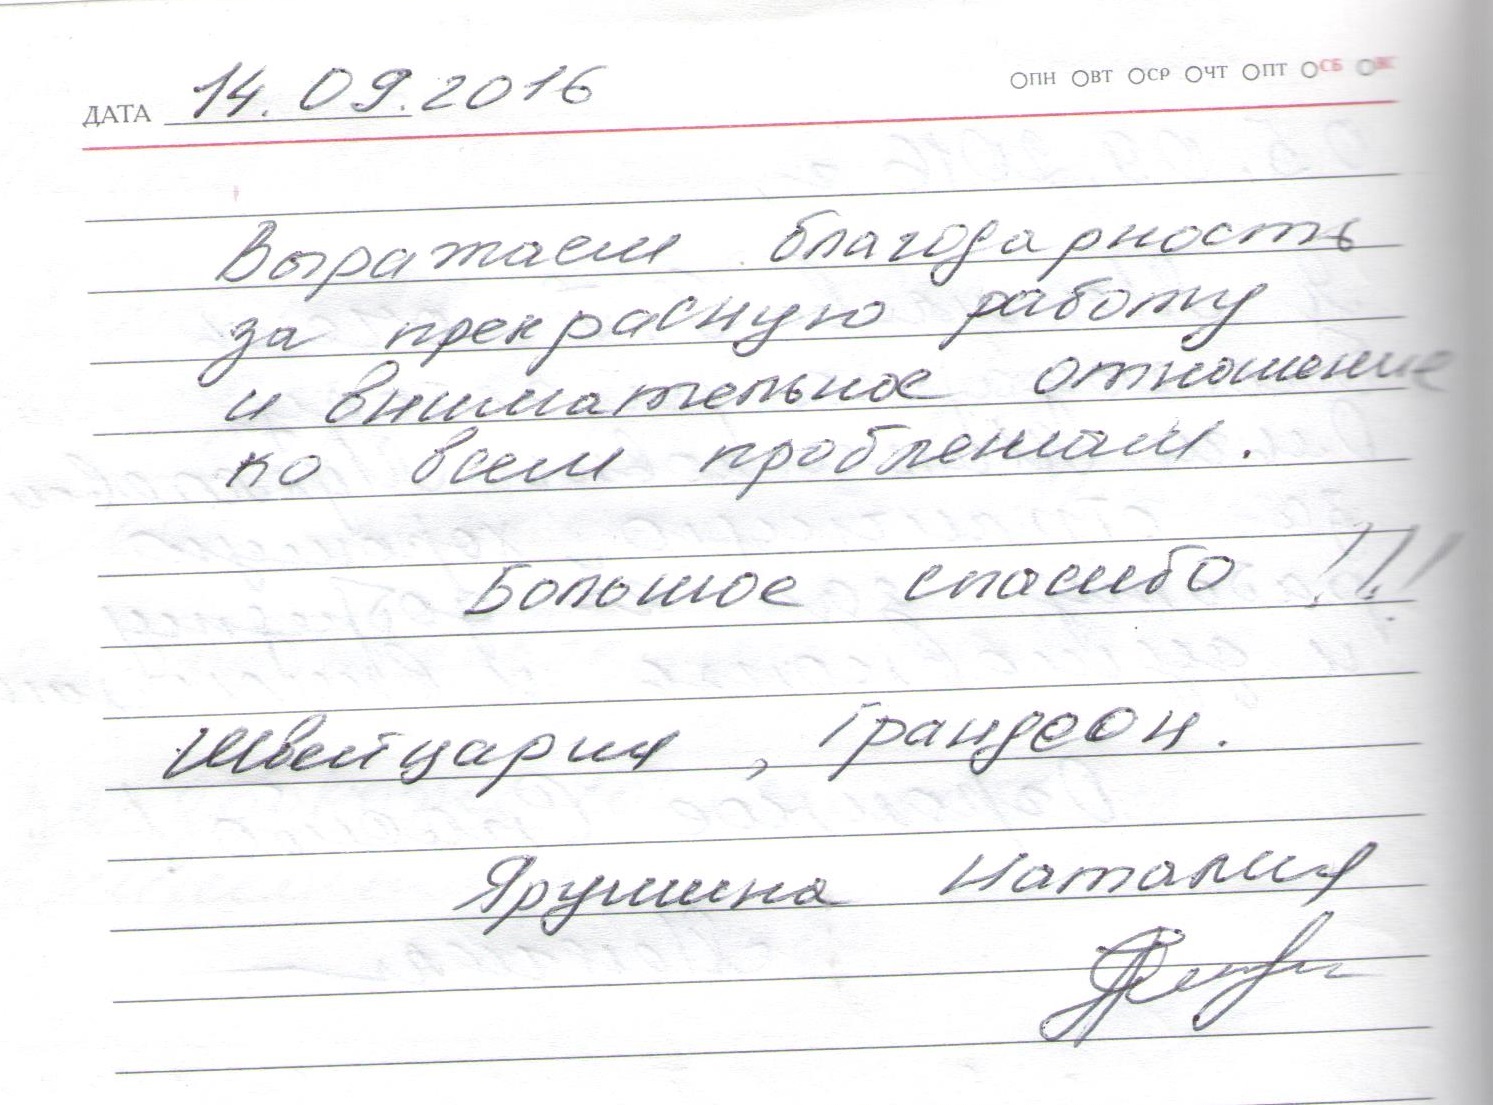 ДАТА 14.09.2016 ПН ВТ СР ЧТ ПТ СБ ВС
Выражаем благодарность
за прекрасную работу
и внимательное отношение
ко всем проблемам.
Большое спасибо!!!
Швейцария, Грандсон.
Ярушина Наталия